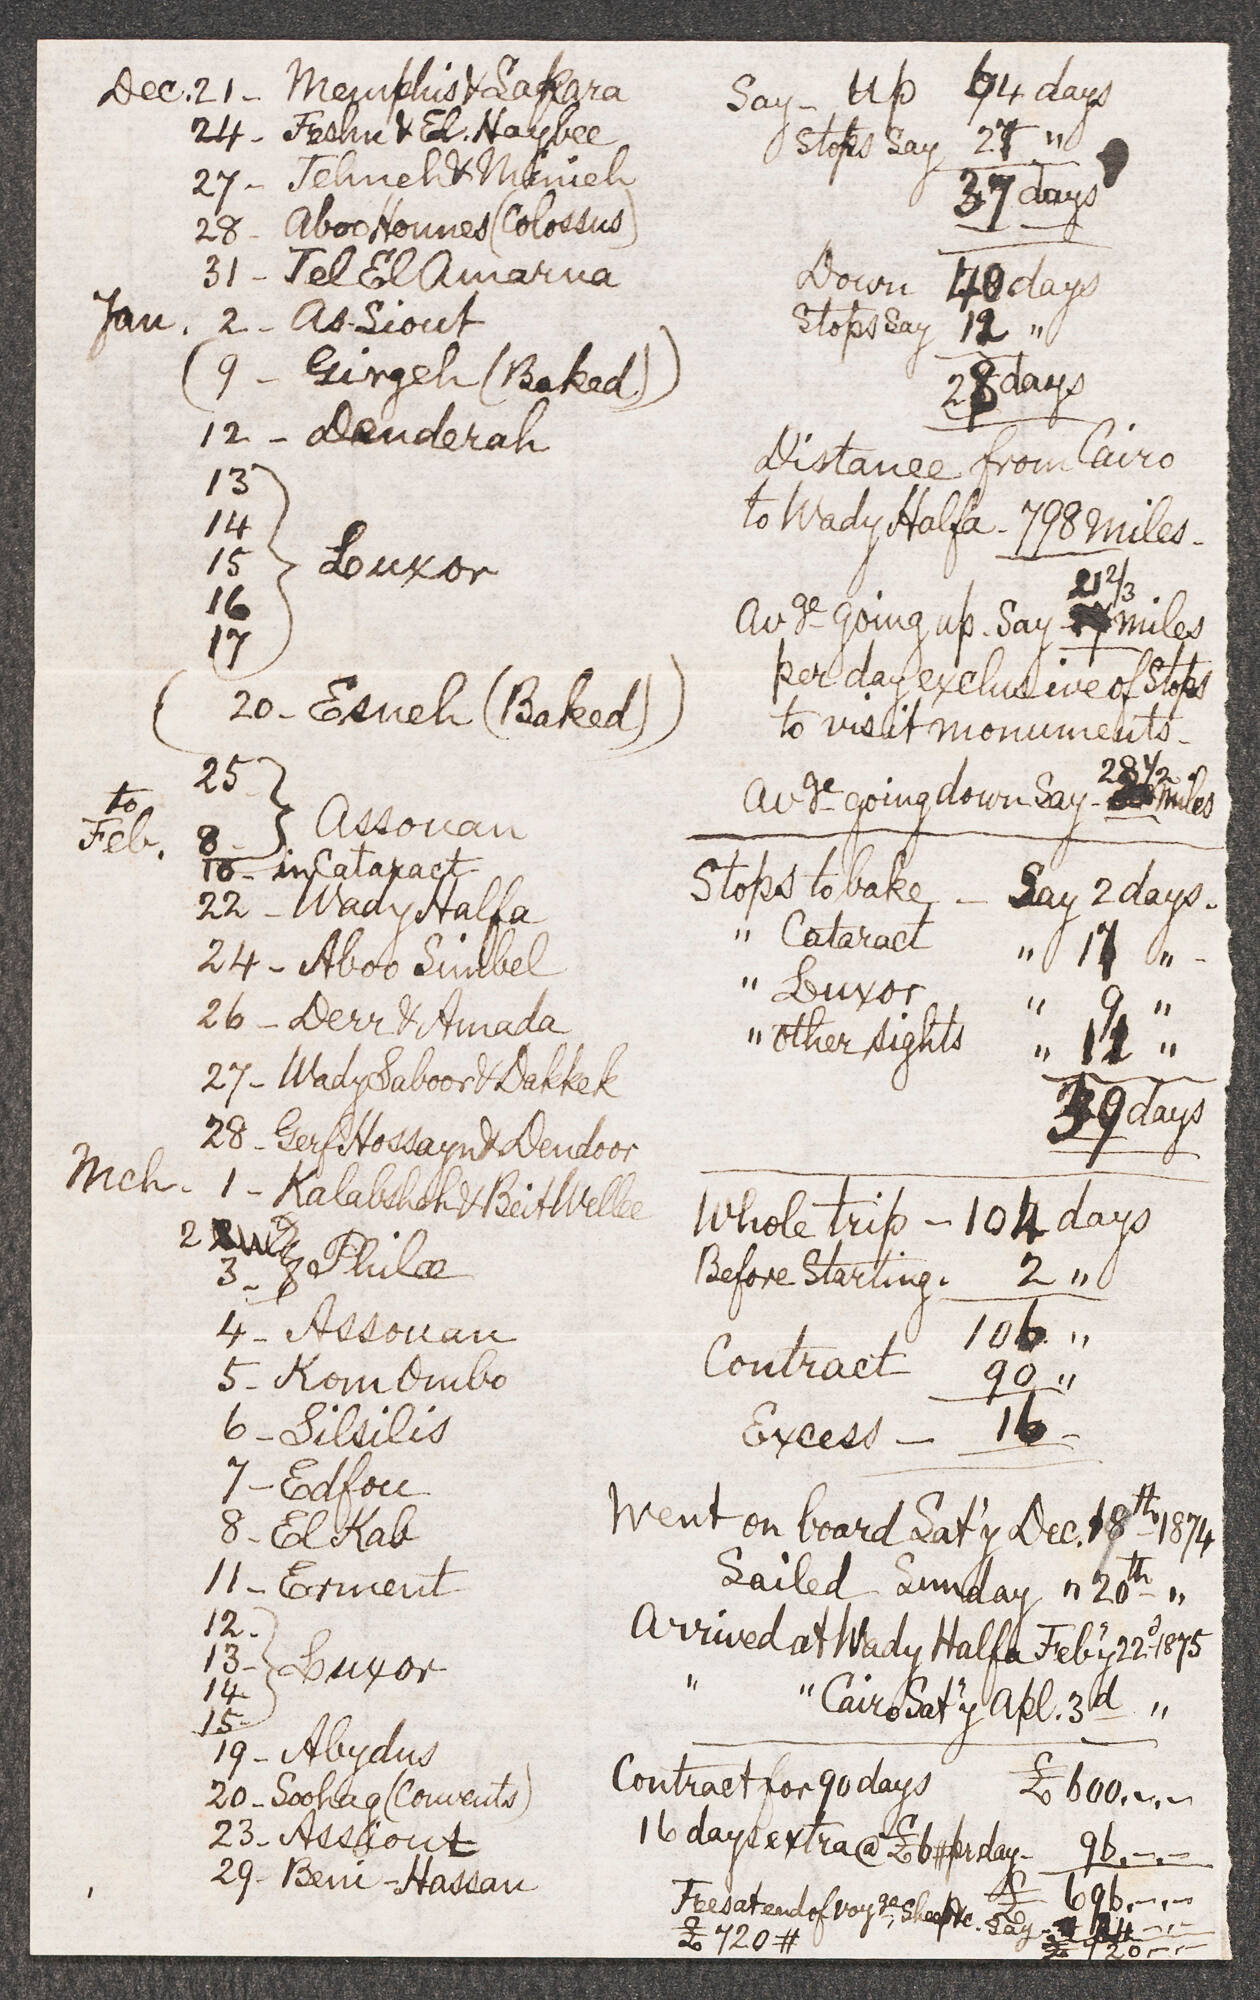 Dec. 21 - Memphis & Sakara
24 - Feshn & El. Haybee
27 - Tehneh & Minieh
28 - Aboo Honnes (Colossus)
31 - Tel El Amarna
Jan. 2 - As-Siout
(9 - Girgeh (Baked.))
12 - Denderah
13
14
15 } Luxor
16
17
(20 - Esneh (Baked))
25
to } Assouan
Feb. 8 -
10 - in Cataract
22 - Wady Halfa
24 - Aboo Simbel
26 - Derr & Amada
27 - Wady Saboor & Dakkek
28 - Gerf Hossayn & Dendoor
Mch. 1 - Kalabsheh & Beit Wellee
2
3 - & Philæ
4 - Assouan
5 - Kom Ombo
6 - Silsilis
7 - Edfou
8 - El Kab
11 - Erment
12.
13 - } Luxor
14
15 -
19 - Abydus
20 - Soohag (Convents)
23 - Assiout
29 - Beni-Hassan
Say - Up 64 days
Stops Say 27 "
37 days
Down 40 days
Stops Say 12 "
28 days
Distance from Cairo
to Wady Halfa - 798 Miles -
21 2/3
Avge going up. Say - miles
per day exclusive of Stops
to visit monuments -
28 1/2
Avge going down Say - miles
Stops to bake - Say 2 days.
" Cataract " 17 " -
" Luxor " 9 "
" other sights " 11 "
39 days
Whole trip - 104 days
Before Starting. 2 "
106 "
Contract 90 "
Excess - 16 -
Went on board Sat'y Dec. 18th 1874
Sailed Sunday " 20th "
Arrived at Wady Halfa Feb'y 22d 1875
" " Cairo Sat'y Apl. 3d "
Contract for 90 days £600.-.-
16 days extra @ £6# pr day - 96.-.-
£ 696.-.-
Fees at end of voyge, Sheep &c. Say - 24.-.-
£720# £ 720.-.-